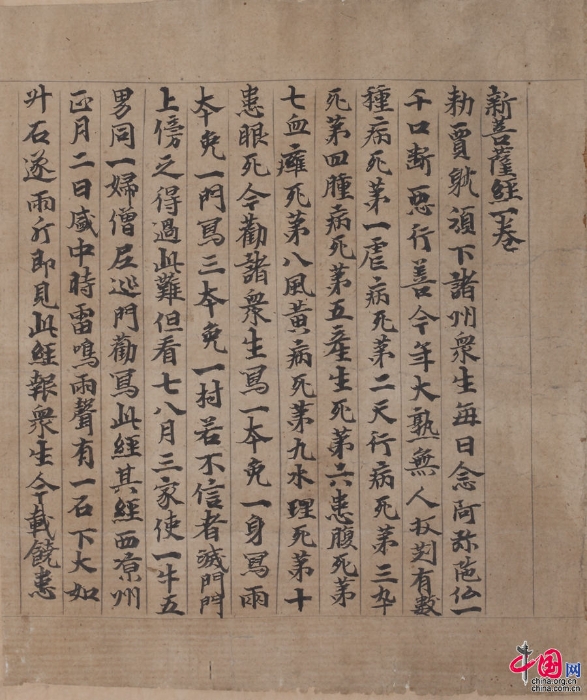 新菩薩經一卷
勑賈躭頒下諸州衆生每日念阿弥陁仏一
千口断惡行善今年大熟無人収刈有數
種病死第一虐病死第二天行病死第三卒
死第四腫病死第五産生死第六患腹死第
七血癰死第八風黄病死第九水理死第十
患眼死今勸諸衆生冩一本免一身冩兩
本免一門冩三本免一村若不信者滅門門
上傍之得過此難但看七八月三家使一牛五
男同一婦僧尼巡門勸冩此經其經西凉州
正月二日盛中時雷鳴雨聲有一石下大如
升石遂兩片即見此經報衆生今載饒患
中国网
china.org.cn
china.com.cn